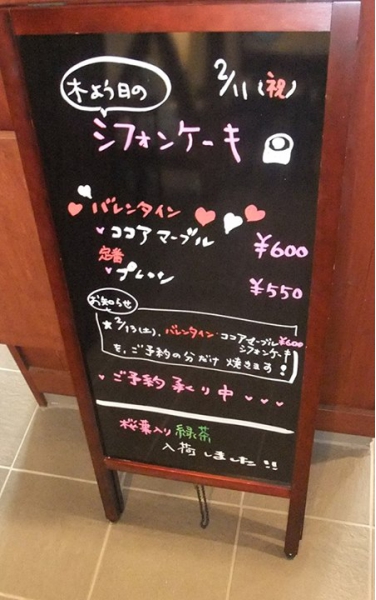 木よう日の
2/11(祝)
シフォンケーキ
バレンタイン
ココアマーブル ¥600
定番
プレーン ¥550
お知らせ
★2/13(土)、バレンタイン・ココアマーブル¥600
シフォンケーキ
を、ご予約の分だけ焼きます!
ご予約承り中
桜葉入り緑茶
入荷しました!!